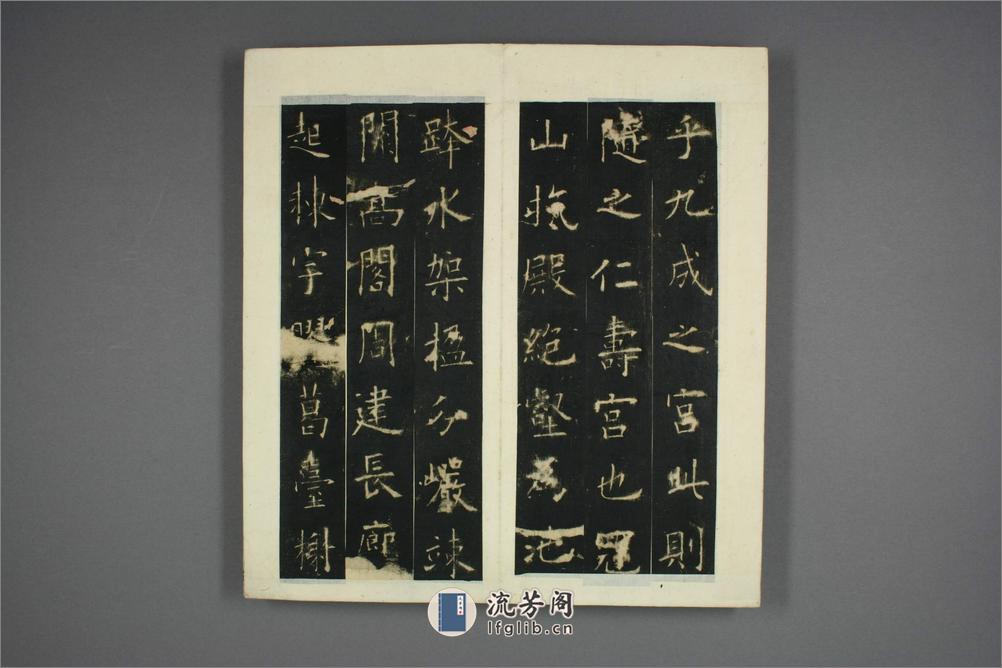 乎九成之宮此則
隨之仁壽宮也冠
山抗殿絕壑為池
跨水架楹分巖竦
闕高閣周建長廊
起棟宇膠葛臺榭
流芳阁
lfglib.cn